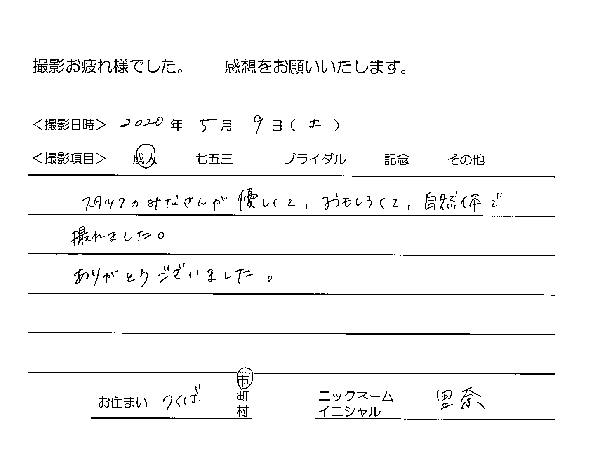 撮影お疲れ様でした。 感想をお願いいたします。
＜撮影日時＞ 2020年 5月 9日（土）
＜撮影項目＞ 成人 七五三 ブライダル 記念 その他
スタッフのみなさんが優しくて、おもしろくて、自然体で
撮れました。
ありがとうございました。
お住まい つくば 市町村 ニックネーム イニシャル 里奈